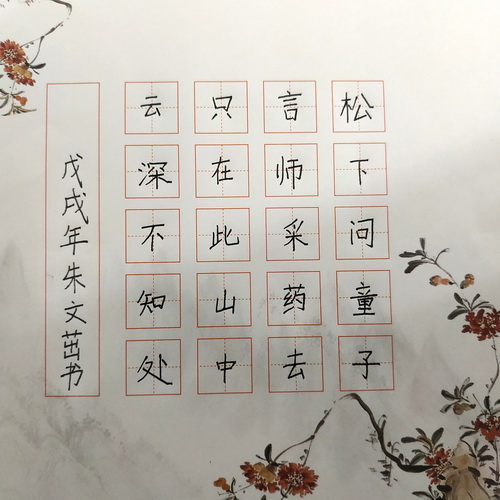 松下问童子
言师采药去
只在此山中
云深不知处
戊戌年朱文茁书